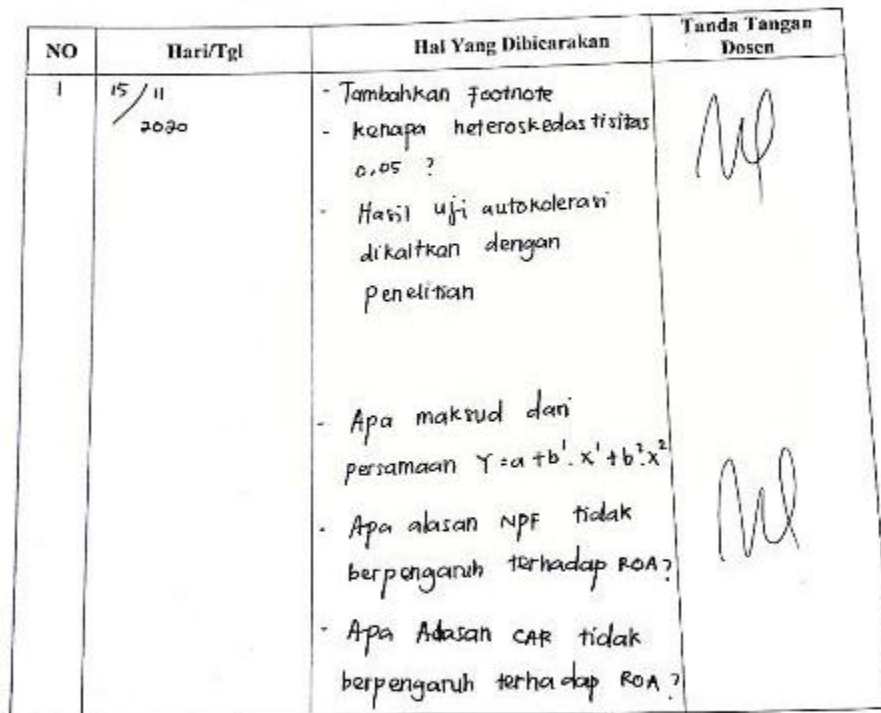 NO Hari/Tgl Hal Yang Dibicarakan Tanda Tangan Dosen
1 15/11 2020
- Tambahkan Footnote
- kenapa heteroskedastisitas
0,05 ?
- Hasil uji autokolerasi
dikaitkan dengan
penelitian
- Apa maksud dari
persamaan Y = a + b¹. x¹ + b².x²
- Apa alasan NPF tidak
berpengaruh terhadap ROA?
- Apa Alasan CAR tidak
berpengaruh terhadap ROA ?